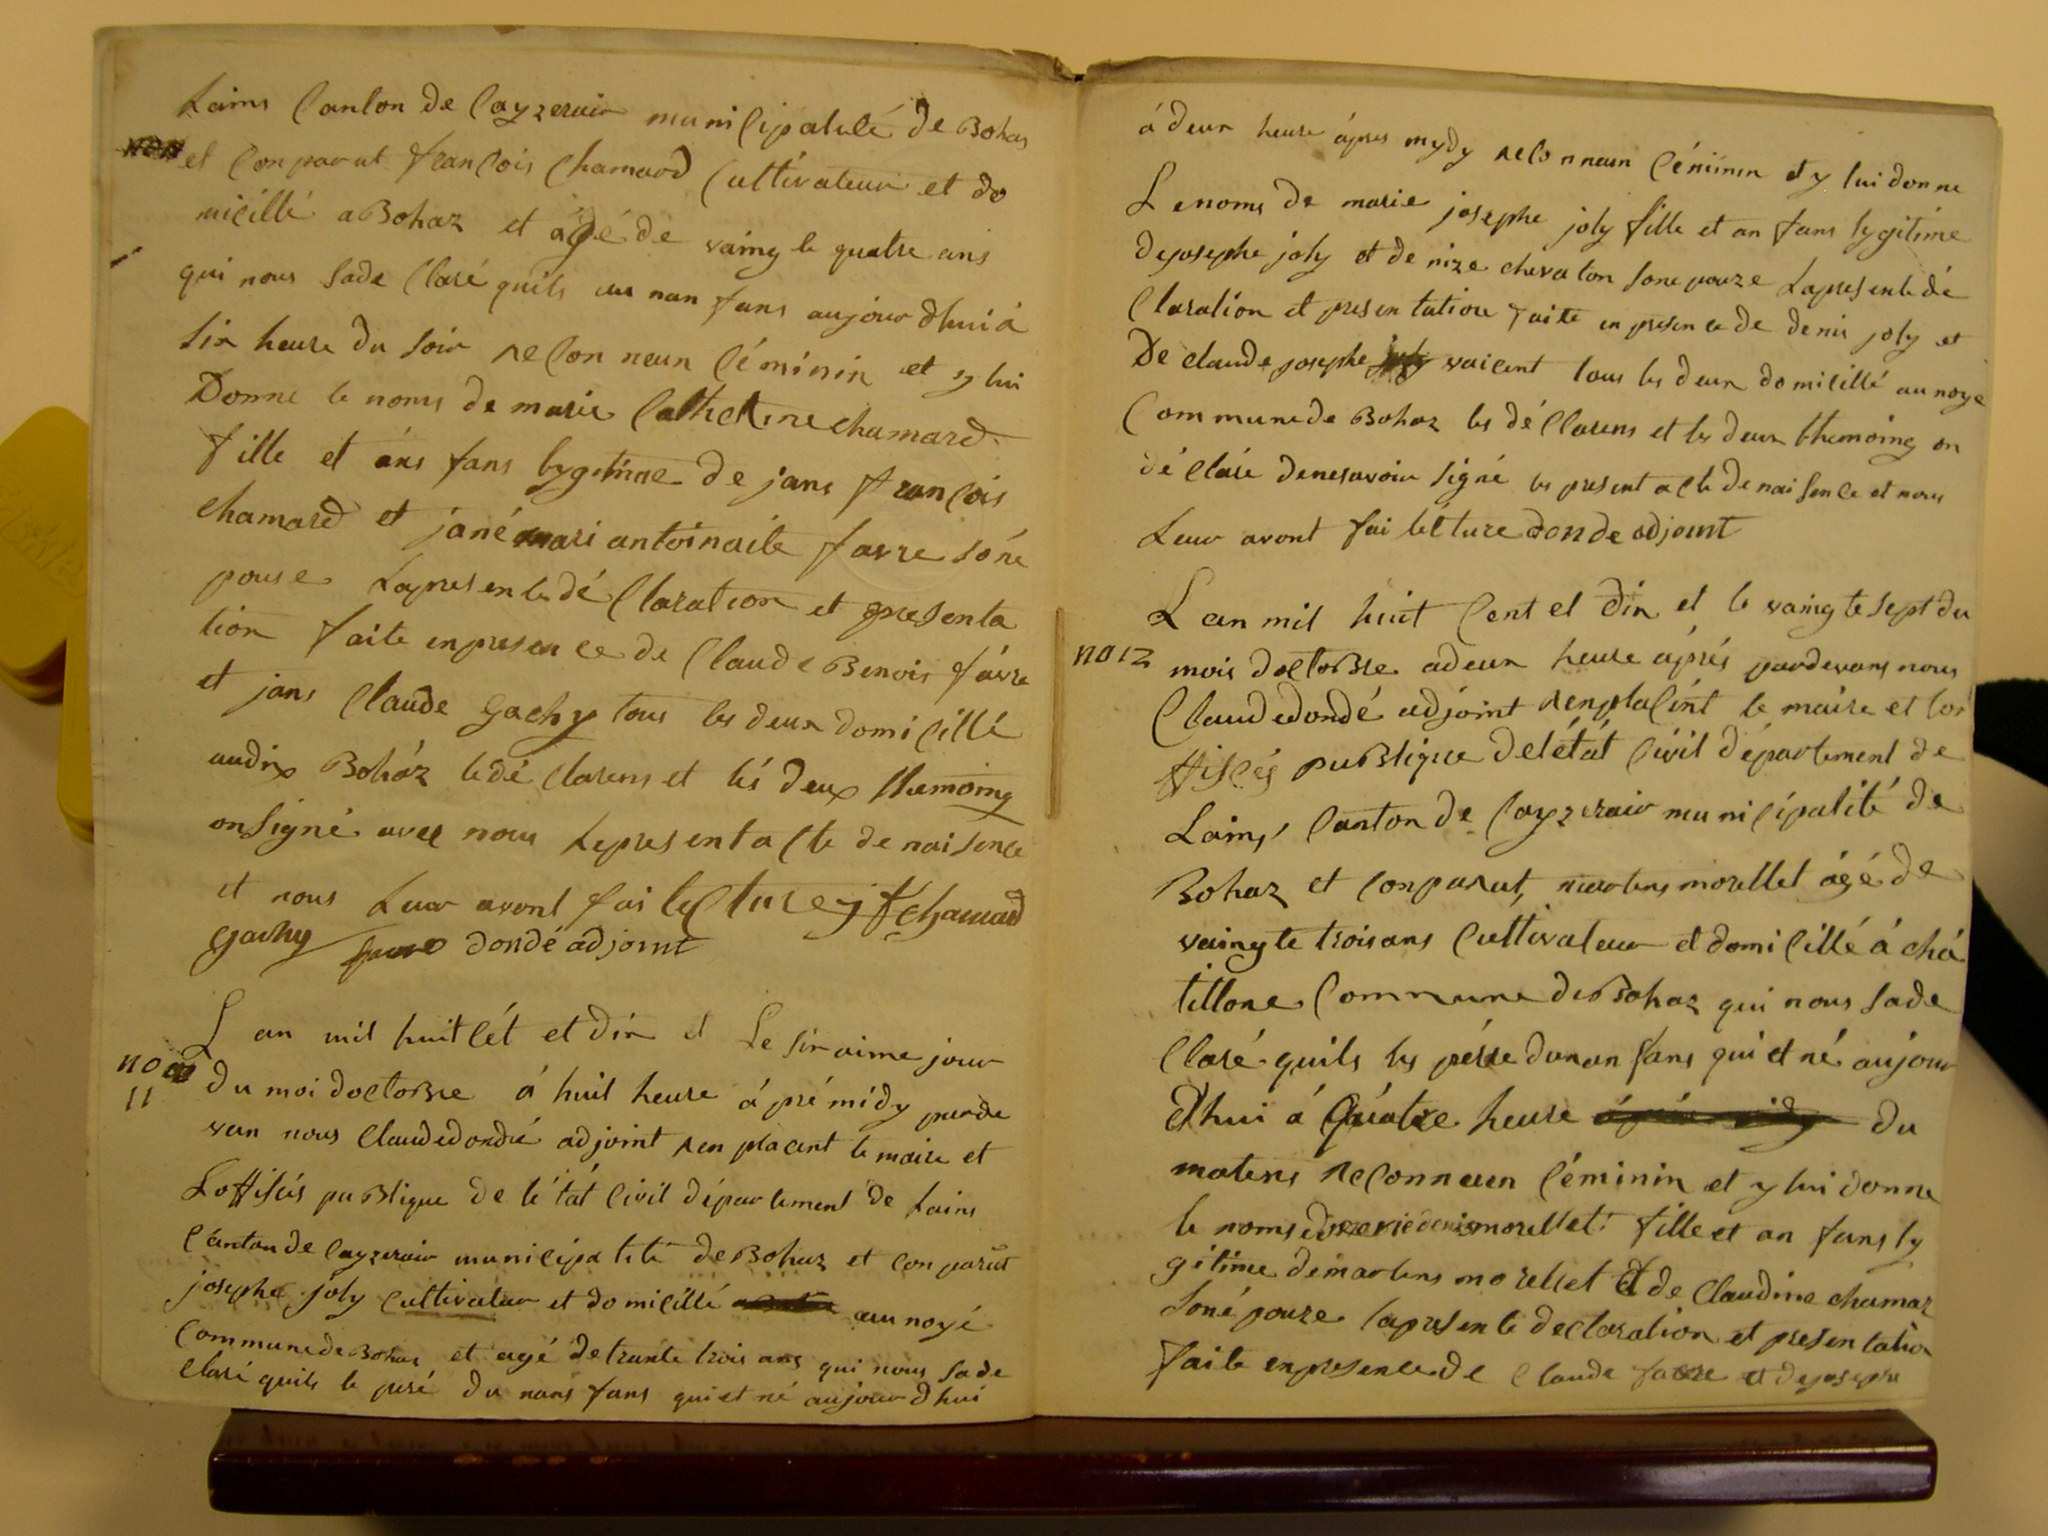 Lains Canton de Cayzerair municipalité de Bohas
et Conparut françois Chamard Cultivateur et do
micillé a Bohaz et ágé de vaing te quatre ans
qui nous sade Claré quils au nan fans aujour dhui á
Six heure du Soir reconneun Céminin et y lui
Donne le noms de marie Cathetine chamard
fille et áns fans lygitime de jans françois
chamard et jané mari antoinaite favre sóné
pouse Lapresente dé Claration et presenta
tion faite enpresence de Claude Benoir fávre
et jans Claude Gachy tous les deux domicillé
audix Boház ledé clarens et lés deux themoing
onsigné avec nous Lepresent acte de naisence
et nous Leur avont fai lecture jf chamard
Gachy favre dondé adjoint
L an mil huit cét et dix et Le sixaime jour
no 11
du moi doctobre á huit heure á pré midy parde
van nous Claudedondé adjoint renplacent le maire et
Loffisiés publique de l'é tát Civil département de Lains
Canton de Cayzerair municipalité de Bohaz et Conparút
josephe joly Cultivateur et domicillé au noyé
Commune de Bohas et agé de trante trois ans qui nous sade
Claré quils le peré du nans fans qui et né aujour dhui
á deux heure ápres mydy reconneun Céminin et y lui donne
Le noms de marie josephe joly fille et an fans lygitime
de josephe joly et denize chevaton sone pouze Lapresente dé
Claration et presentation faite en presence de denis joly et
De claude josephe vaicent tous les deux domicillé au noye
Commune de Bohaz les déClarens et les deux themoing on
déClaré denesavoir signé les present acte de naisence et nous
Leur avont fai lécture dondé adjoint
L an mil huit Cent et dix et le vaingte sept du
no 12
mois doctobre a deux heure áprés pardevans nous
Claudedondé adjoint renplacént le maire et lor
ffisiés publique delétát Civil département de
Lains Canton de Cayzerair municipalité de
Bohaz et Conparut, martens morellet ágé de
vaingte trois ans Cultivateur et domicillé á chá
tillone Commune de Bohaz qui nous sade
Claré quils les pére dunan fans qui et né aujour
d'hui á Quátre heure du
matens reconneun Céminin et y lui donne
le noms de marie denis morellet fille et an fans ly
gitime demartens morellet et de Claudine chamaz
Soné pouze lapresente declaration et presentation
faite enpresence de Claude favre et de josephe